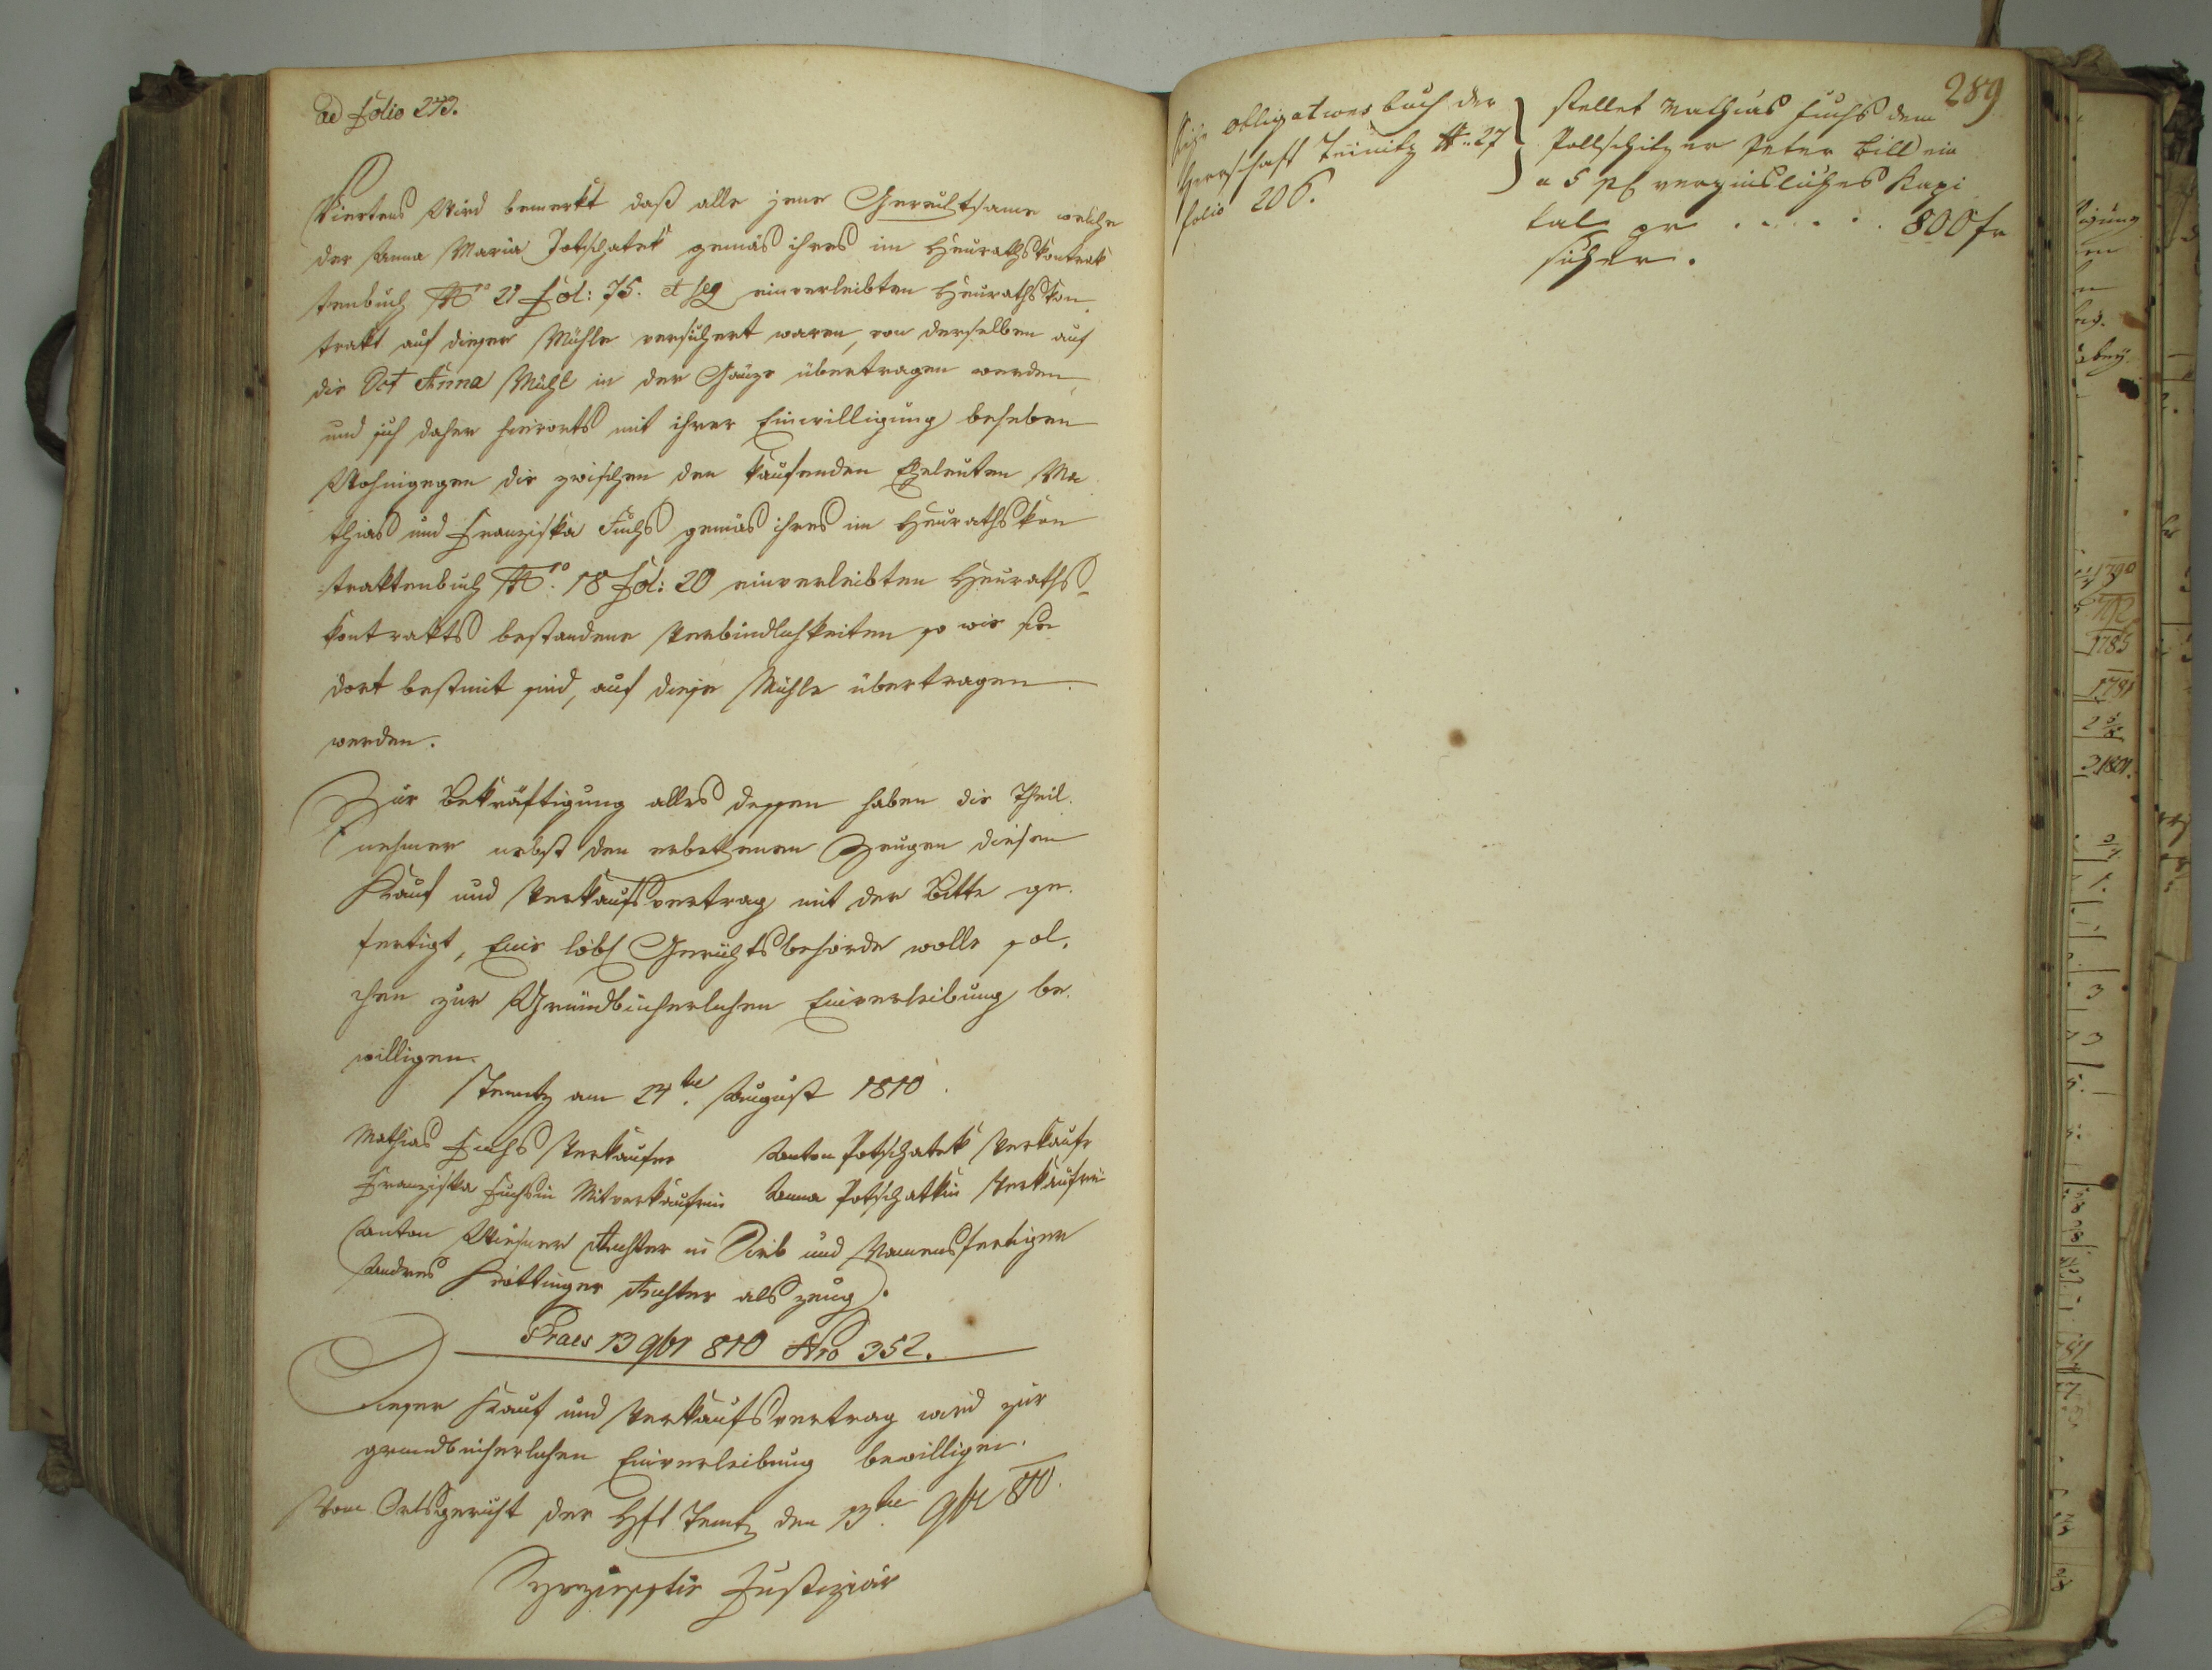 ad folio 273.
Viertens Wird bemerkt daß alle jene Gerechtsame welche
der Anna Maria Potschatek gemäs ihres im Heurathskontrak
tenbuch Nro 21 Fol: 75. et seq einverleibten Heurathskon
trakt auf dieser Mühle versichert waren, von derselben auf
die Sct Anna Mühl in der übertragen werden
und sich daher hierorts mit ihrer Einwilligung beheben
Wohingegen die zwischen den kaufenden Eheleuten Ma
thias und Franziska Fuchs gemäs ihres im Heurathskon
traktenbuch Nro. 18 Fol: 20 einverleibten Heuraths-
kontrakts bestandene Verbindlichkeiten so wie sie
dort bestimt sind, auf diese Mühle übertragen
werden.
Zur Bekräftigung alles dessen haben die Theil
nehmer nebst den erbethenen Zeugen diesen
Kauf und Verkaufsvertrag mit der Bitte ge
fertigt, Eine löbl Gerichtsbehörde wolle sol
chen zur Grundbücherlichen Einverleibung be
willigen.
am 24te. August 1810.
Mathias Fuchs Verkaufer Anton Potschatek Verkaufr
Franziska Fuchsin Mitverkaufrin Anna Potschatkin Verkaufrin
Anton Wiesner Richter in und Namensfertiger
Andres Richter als Zeug.
Praes 13 9br 810 Nro 352.
Dieser Kauf und Verkaufsvertrag wird zur
grundbücherlichen Einverleibung bewilligen.
Vom Ortsgericht der Hft den 13te. 9br 810.
Justiziär
289
Siehe Obligationsbuch der
Herrschaft N. 27
folio 206.
stellet Mathias Fuchs dem
Peter Bill ein
a 5 pC verzinsliches Kapi
tal pr . . . . . . 800 fr
sicher.